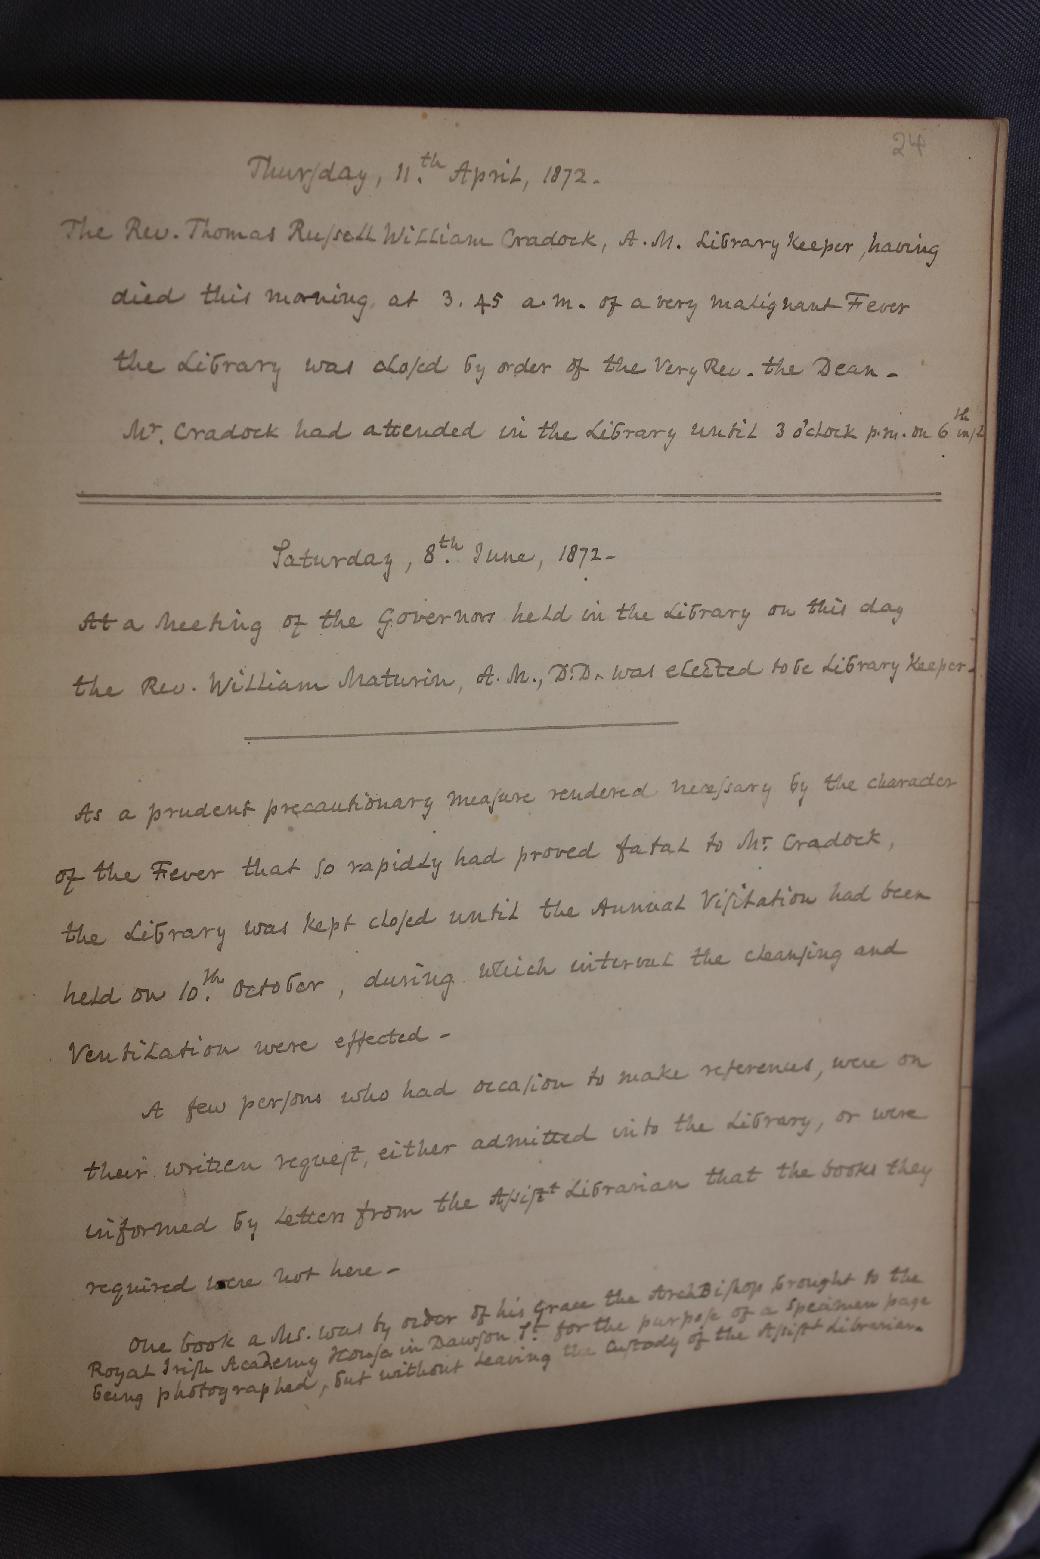 24
Thurſday, 11.th April, 1872-
The Rev. Thomas Ruſsell William Cradock, A.M. Library Keeper, having
died this morning at 3.45 a.m. of a very malignant Fever
the Library was cloſed by order of the Very Rev. the Dean-
Mr. Cradock had attended in the Library until 3 o'clock p.m. on 6th inſt
Saturday, 8.th June, 1872-
At a Meeting of the Governors held in the Library on this day
the Rev. William Maturin, A.M., D.D. was elected to be Library Keeper-
As a prudent precautionary meaſure rendered neceſsary by the character
of the Fever that ſo rapidly had proved fatal to Mr. Cradock,
the Library was kept cloſed until the Annual Viſitation had been
held on 10.th October, during which interval the cleanſing and
Ventilation were effected-
A few perſons who had occaſion to make references, were on
their written requeſt, either admitted into the Library, or were
informed by Letters from the Aſsiſtt Librarian that the books they
required were not here-
One book a MS. was by order of his Grace the ArchBiſhop brought to the
Royal Iriſh Academy Houſe in Dawſon St. for the purpoſe of a Specimen page
being photographed, but without leaving the Cuſtody of the Aſsiſtt Librarian.